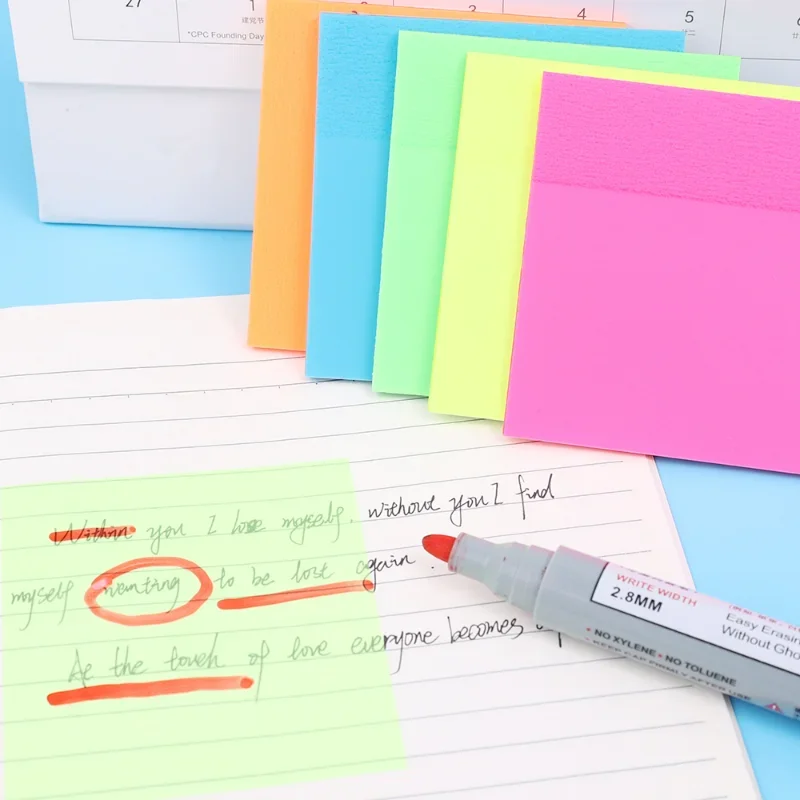 27
1
建党节
*CPC Founding Day
3
4
5
Within you I lose myself. without you I find
myself wanting to be lost again.
At the touch of love everyone becomes
WRITE WIDTH
2.8MM
Easy Erasin
Without Gho
• NO XYLENE • NO TOLUENE
• KEEP CAP FIRMLY AFTER USE